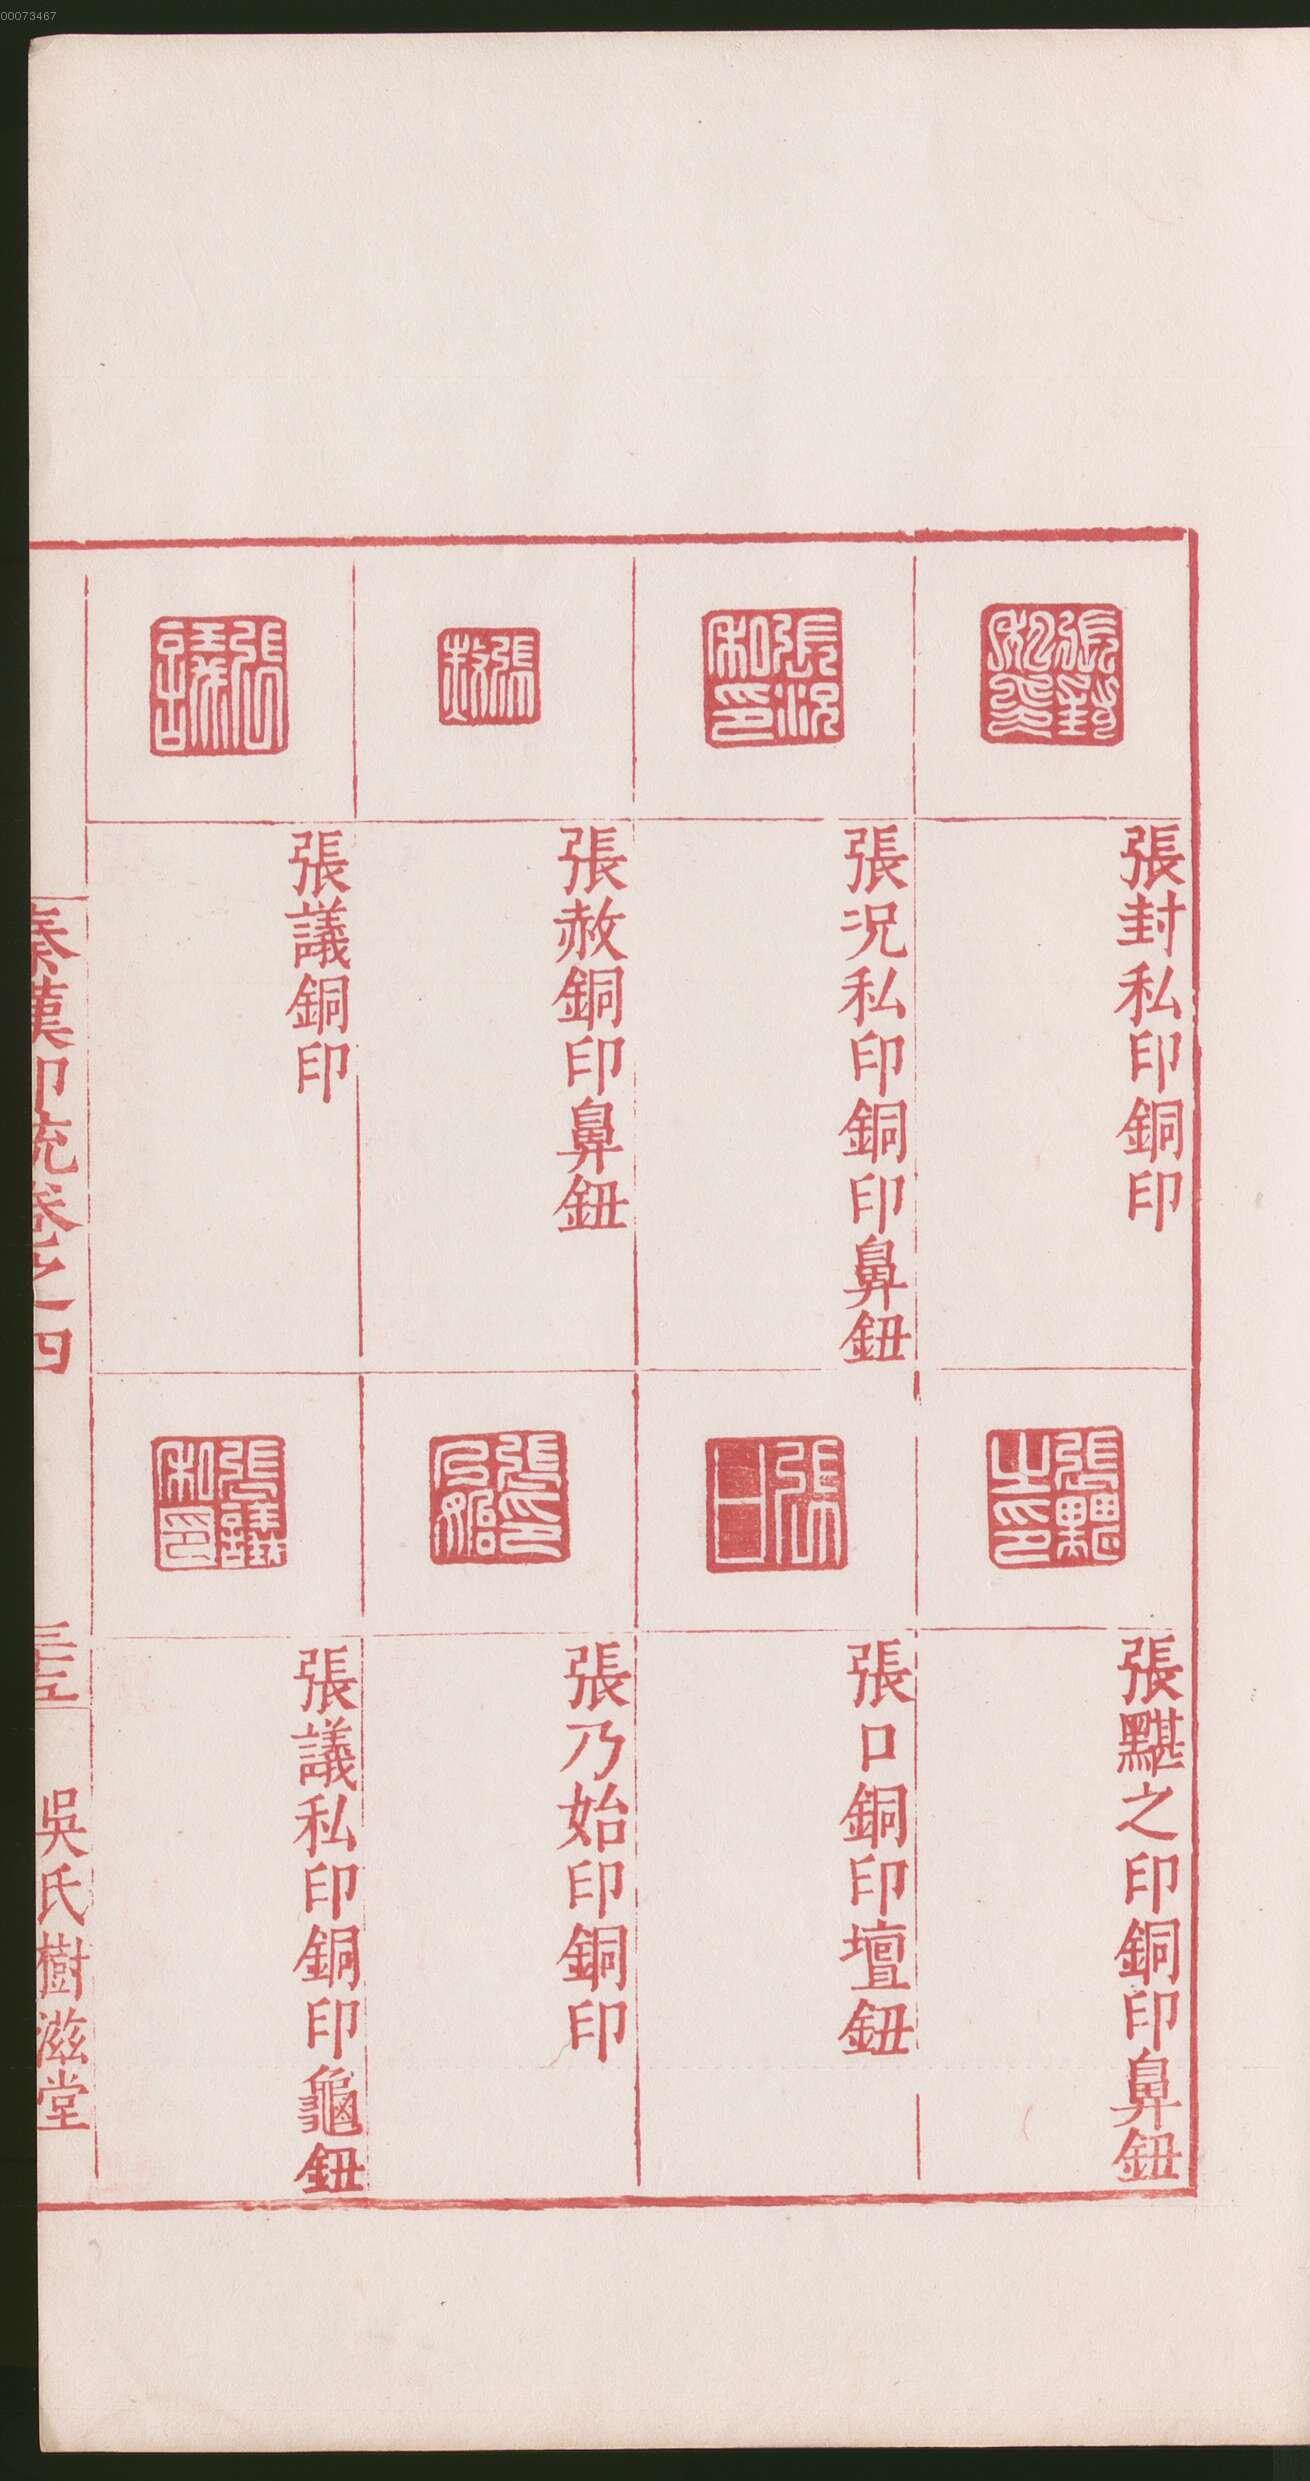 00073467
張封私印
張封私印銅印
張況私印
張况私印銅印鼻鈕
張赦
張赦銅印鼻鈕
張議
張議銅印
張黮之印
張黮之印銅印鼻鈕
張口
張口銅印壇鈕
張印乃始
張乃始印銅印
張議私印
張議私印銅印龜鈕
秦漢印統卷之四
三十五
吳氏樹滋堂